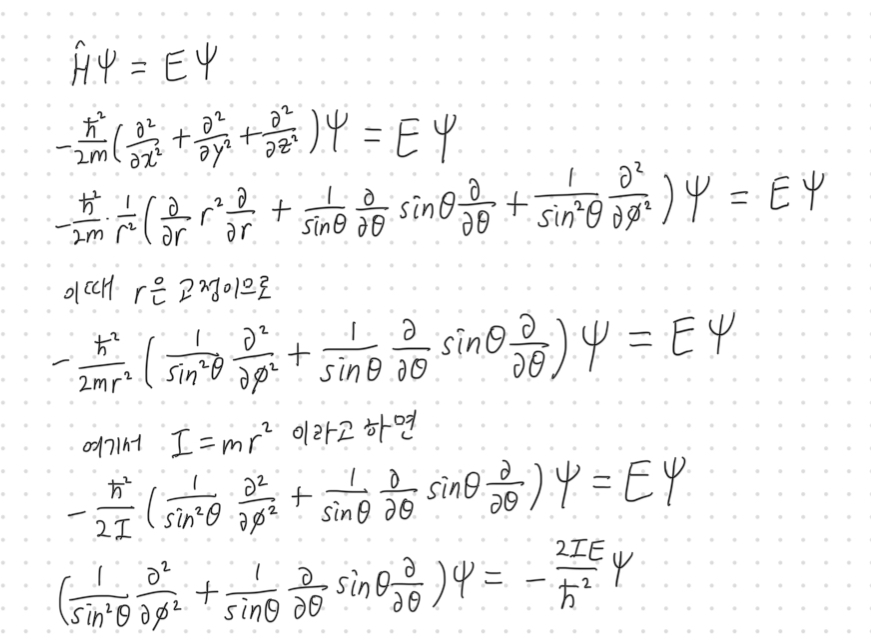 ĤΨ = EΨ
-ħ²/2m (∂²/∂x² + ∂²/∂y² + ∂²/∂z²)Ψ = EΨ
-ħ²/2m · 1/r² (∂/∂r r² ∂/∂r + 1/sinθ ∂/∂θ sinθ ∂/∂θ + 1/sin²θ ∂²/∂φ²)Ψ = EΨ
이때 r은 고정이므로
-ħ²/2mr² (1/sin²θ ∂²/∂φ² + 1/sinθ ∂/∂θ sinθ ∂/∂θ)Ψ = EΨ
여기서 I = mr² 이라고 하면
-ħ²/2I (1/sin²θ ∂²/∂φ² + 1/sinθ ∂/∂θ sinθ ∂/∂θ)Ψ = EΨ
(1/sin²θ ∂²/∂φ² + 1/sinθ ∂/∂θ sinθ ∂/∂θ)Ψ = -2IE/ħ² Ψ